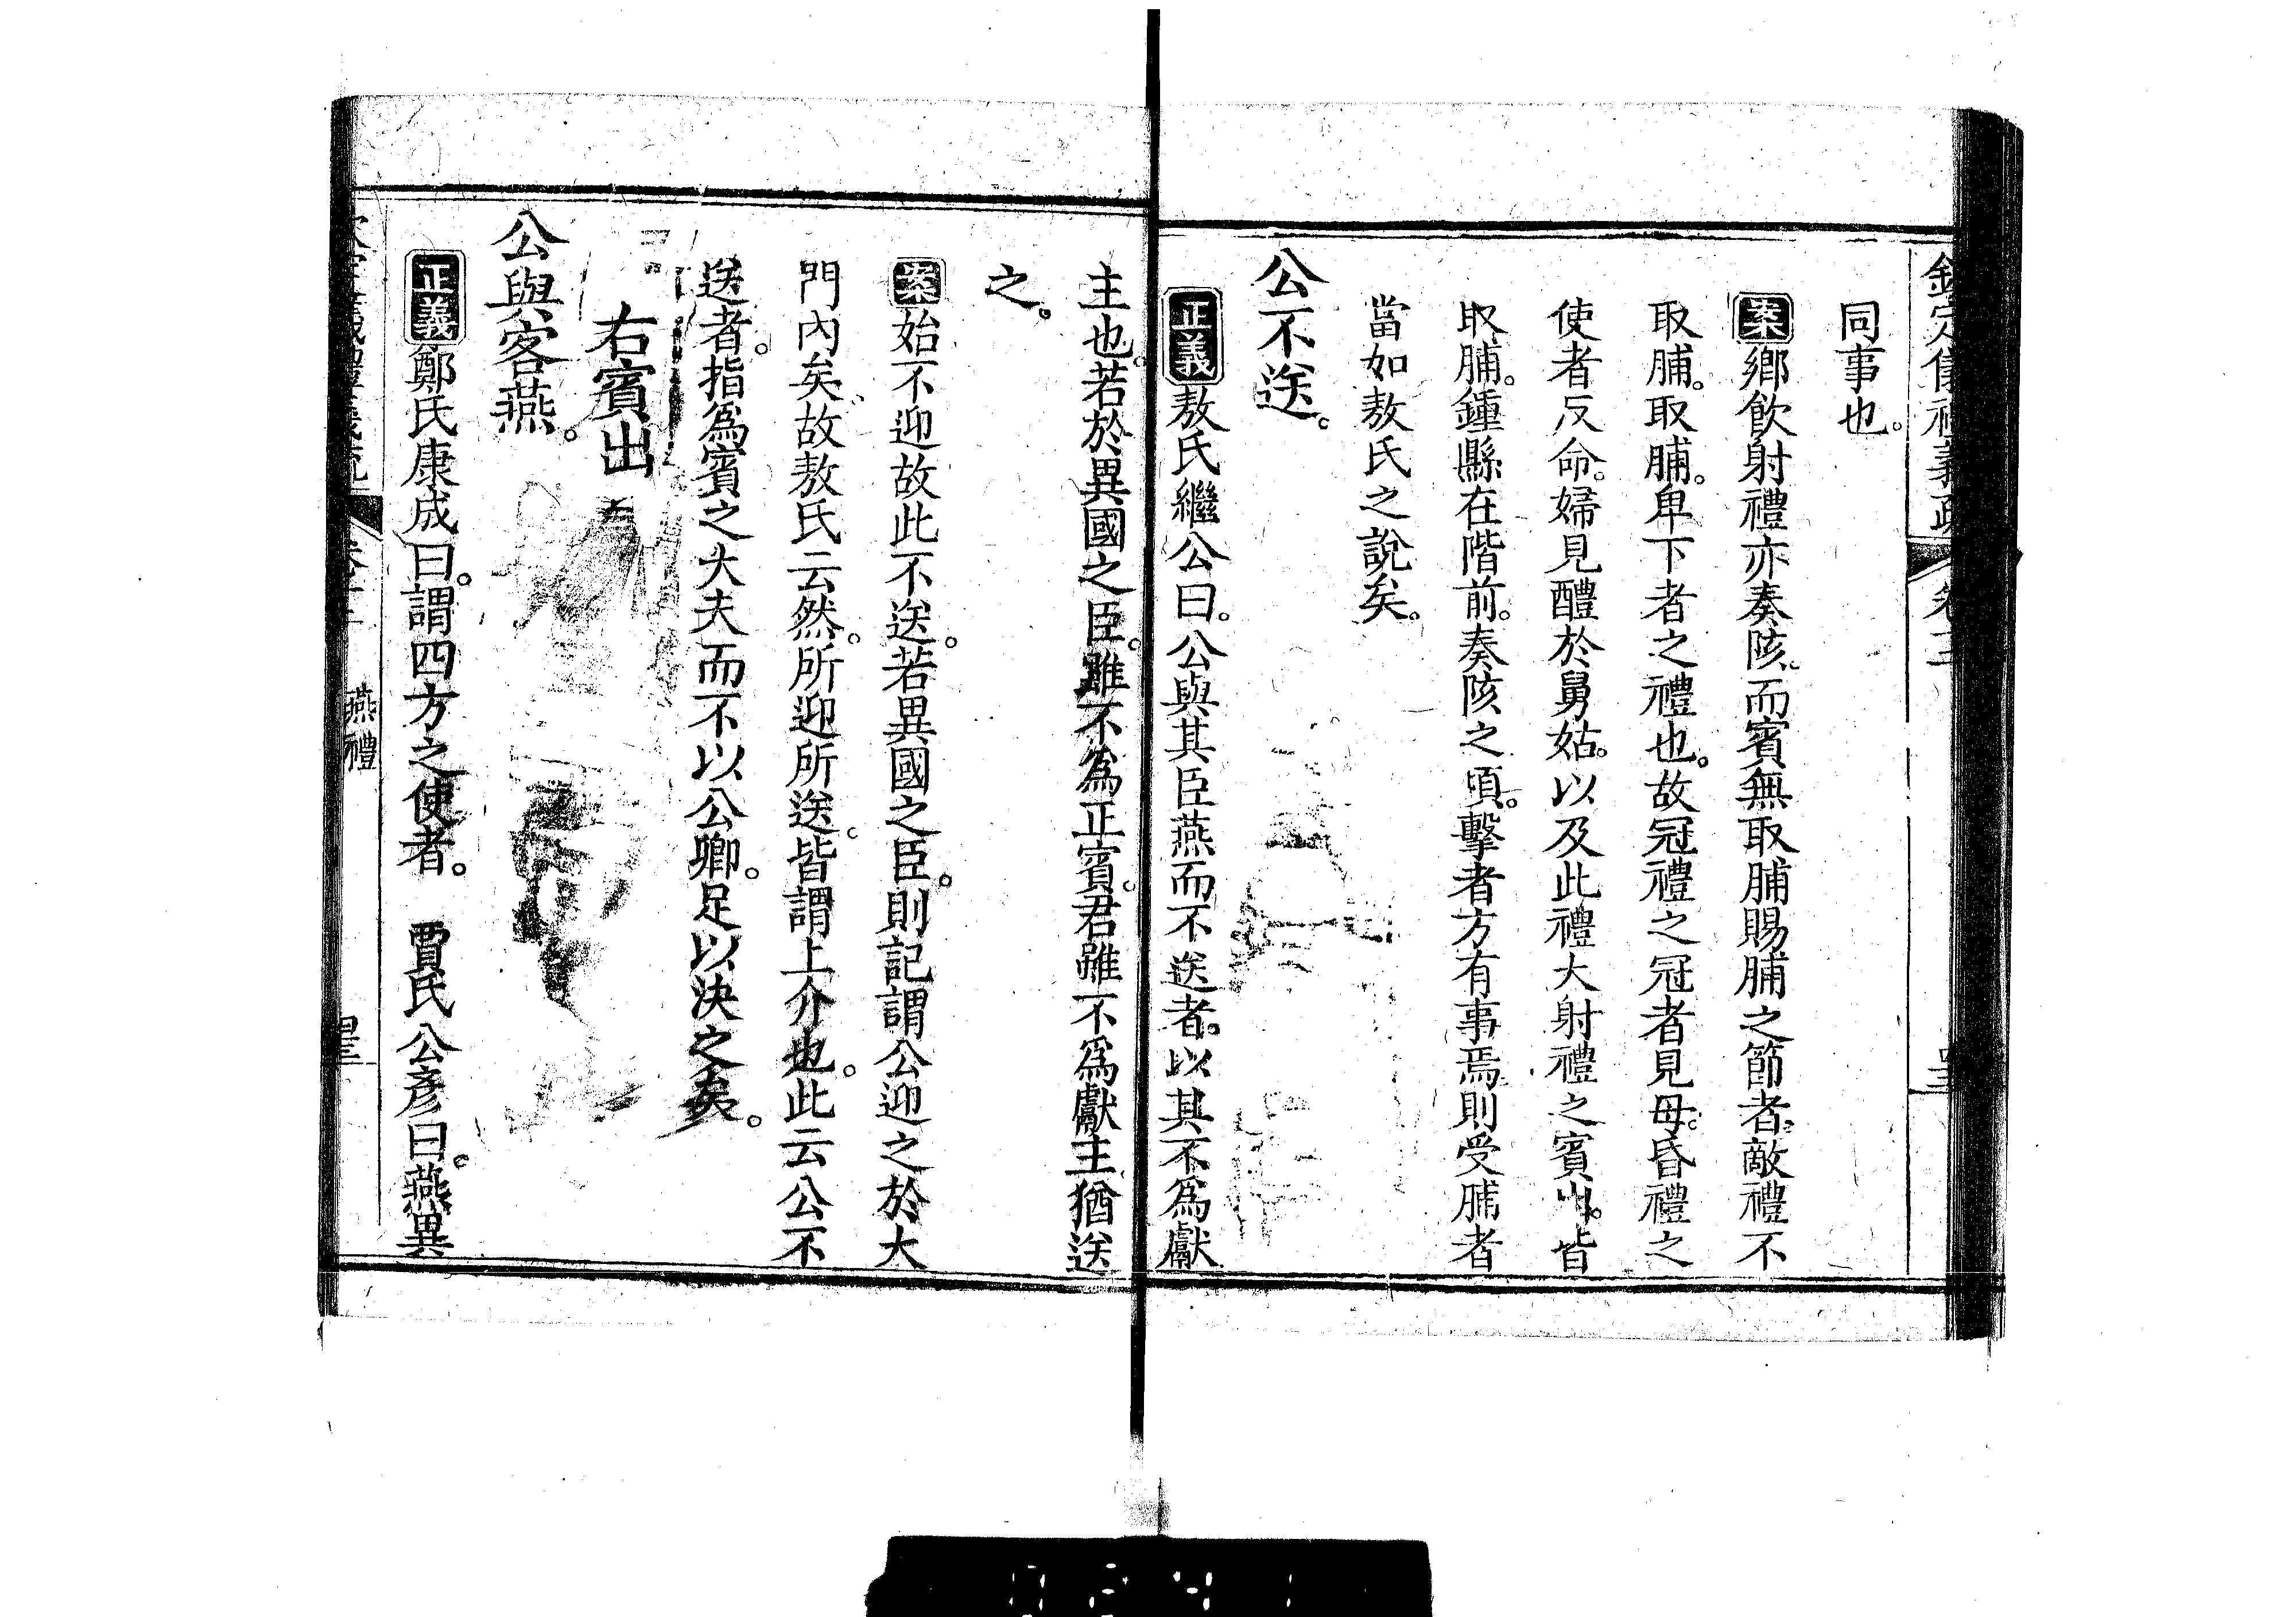 欽定儀禮義疏 卷十二
同事也。
案鄉飲射禮亦奏陔。而賓無取脯賜脯之節者。敵禮不
取脯。取脯。卑下者之禮也。故冠禮之冠者見母。昏禮之
使者反命。婦見醴於舅姑。以及此禮大射禮之賓出。皆
取脯。鍾縣在階前。奏陔之頃。擊者方有事焉。則受脯者
當如敖氏之說矣。
公不送。
正義敖氏繼公曰。公與其臣燕而不送者。以其不為獻
主也。若於異國之臣。雖不為正賓。君雖不為獻主。猶送
之。
案始不迎故此不送。若異國之臣。則記謂公迎之於大
門內矣。故敖氏云然。所迎所送。皆謂上介也。此云公不
送者。指為賓之大夫而不以公卿。足以決之矣。
右賓出
公與客燕。
正義鄭氏康成曰。謂四方之使者。 賈氏公彥曰。燕異
燕禮